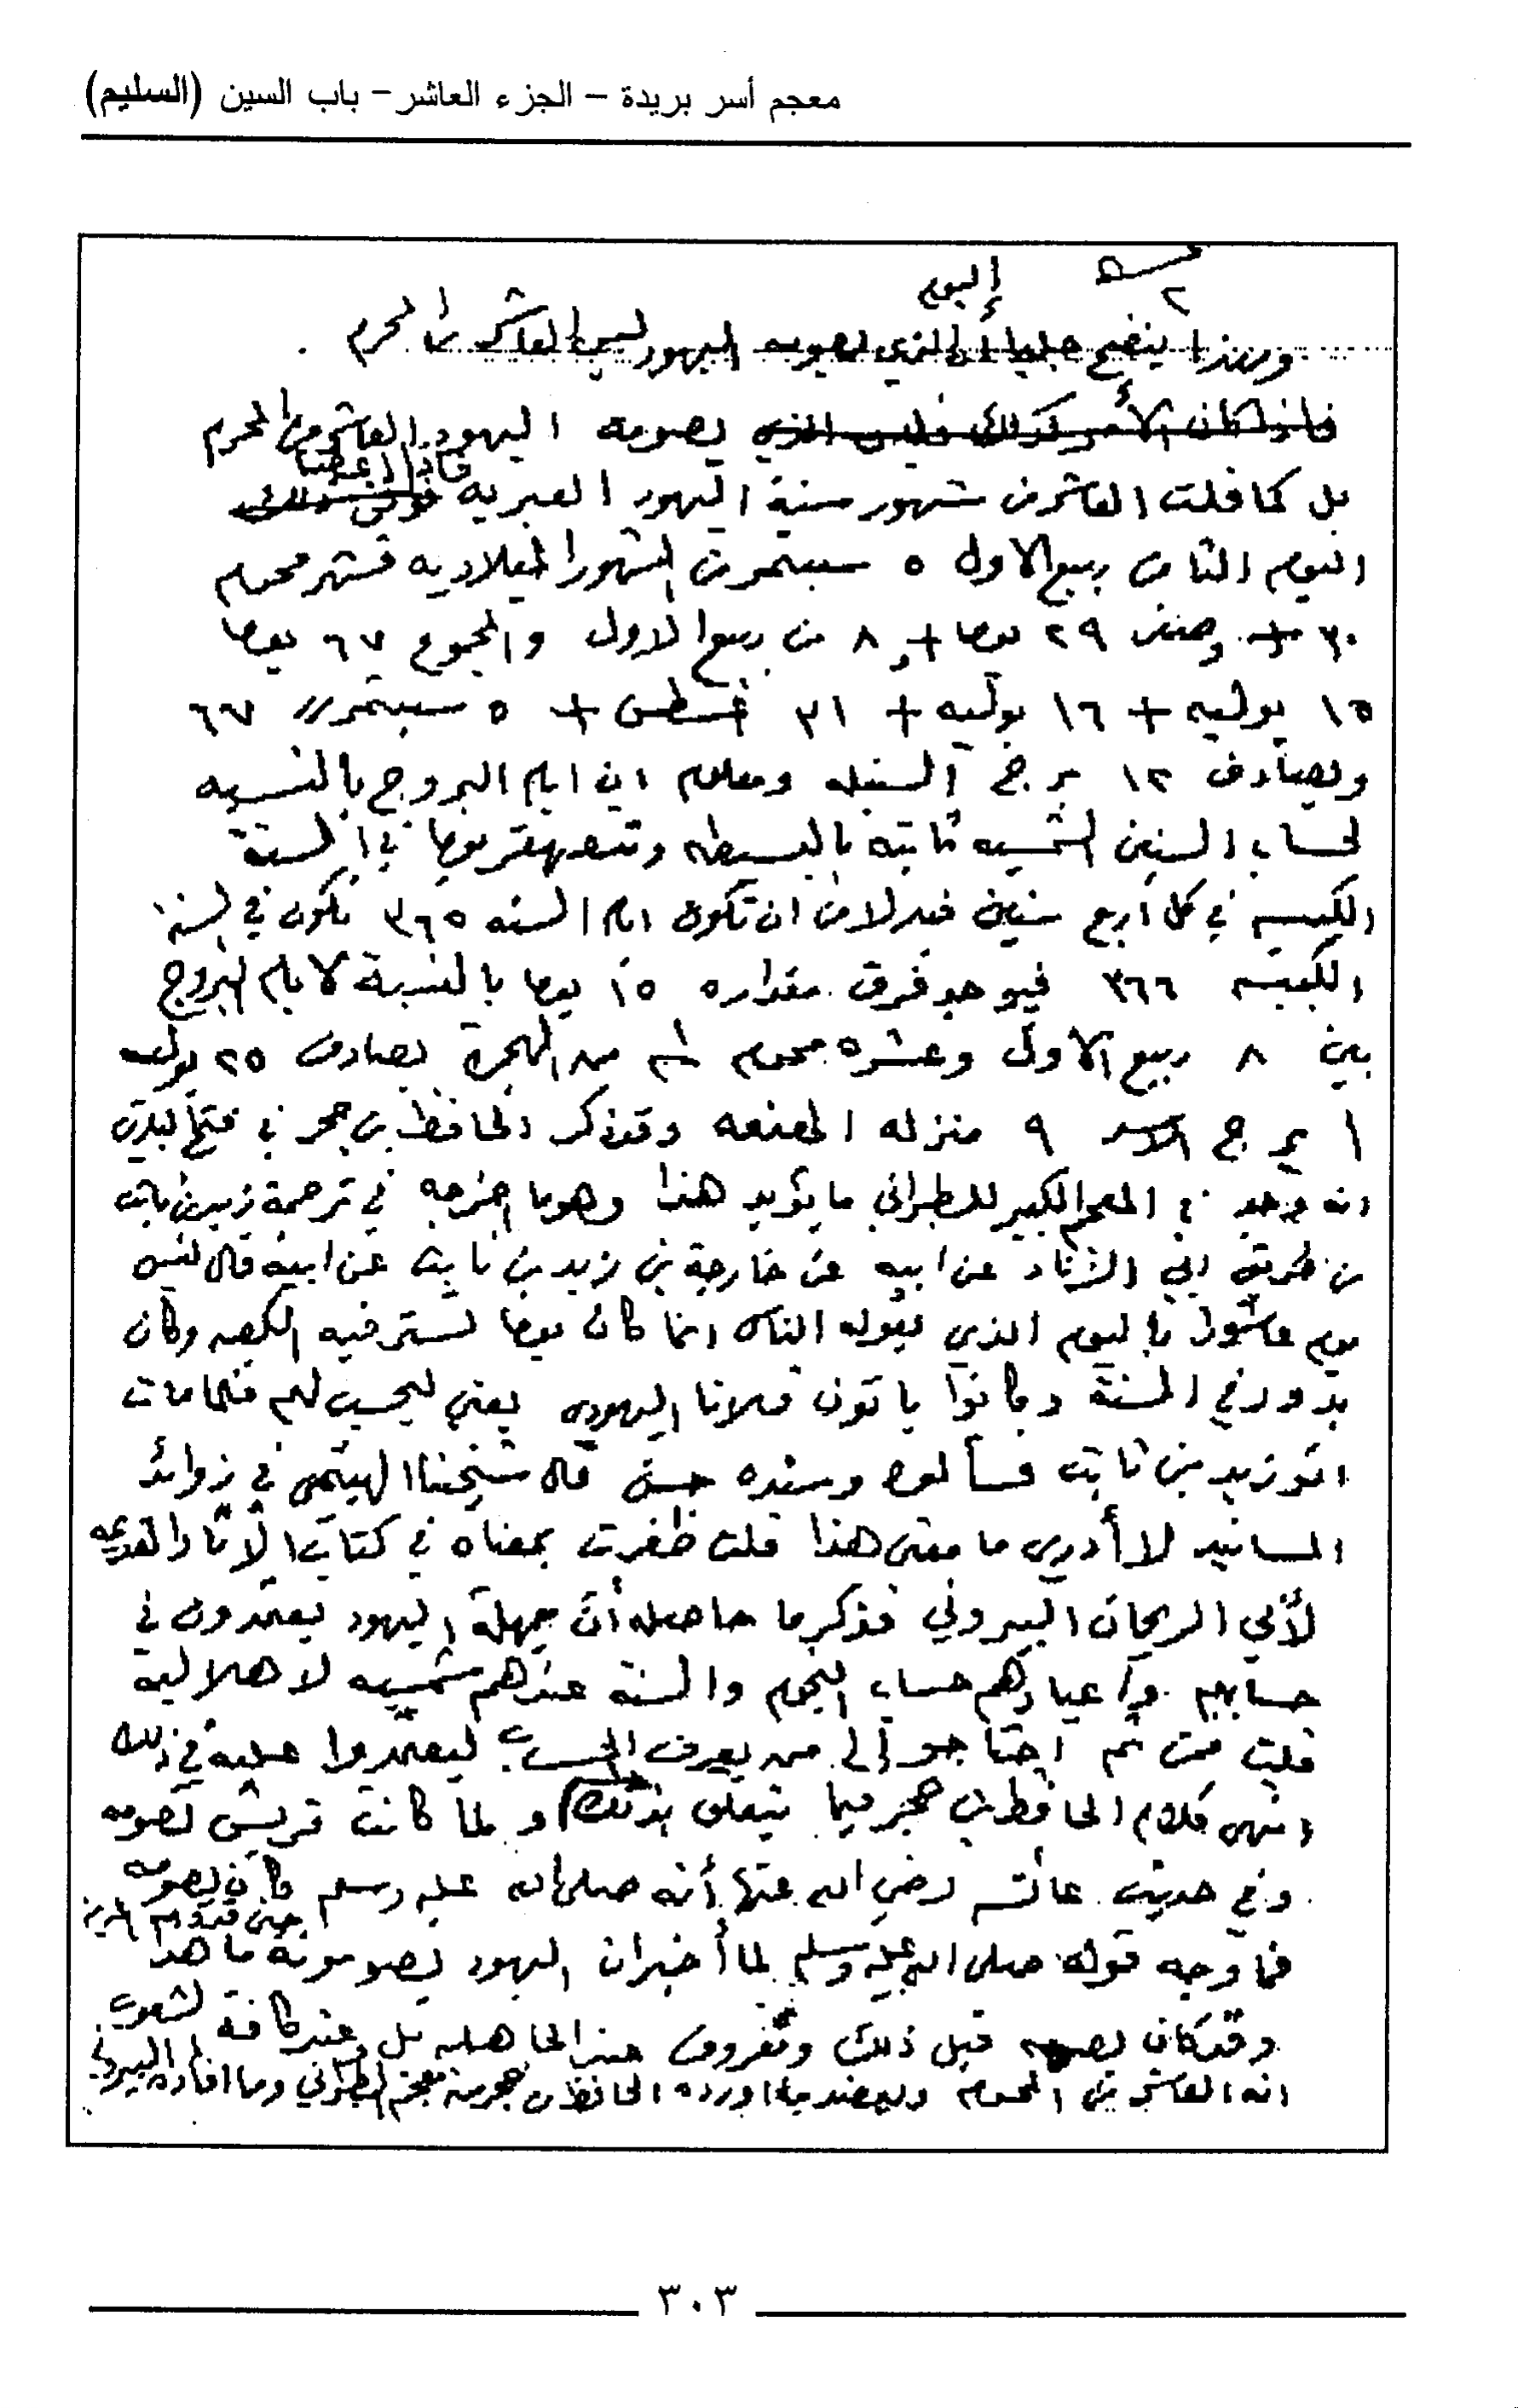 معجم أسر بريدة – الجزء العاشر – باب السين (السليم)
٢
اليوم
وبهذا يتضح جليا أن الذي يصومه اليهود ليس العاشر من المحرم .
فإذا كان الأمر كذلك فليس الذي يصومه اليهود العاشر من المحرم
بل كما قلت العاشر من شهور سنة اليهود العبرية فإذا
اليوم الثامن ربيع الاول ٥ سبتمبر من الشهور الميلاديه فشهر محرم
٣٠ + وصفر ٢٩ يوما + ٨ من ربيع الاول والمجموع ٦٧ يوما
١٥ يوليه + ١٦ يوليه + ٣١ غسطس + ٥ سبتمبر ٦٧
ويصادف ١٢ برج السنبله ومعلوم ان ايام البروج بالنسبه
لحساب السنين الشمسيه ثابته بالبسيطه يوما في السنة
الكبيسه في كل أربع سنين فبدلا من ان تكون ايام السنه ٣٦٥ تكون في السنه
الكبيسه ٣٦٦ فيوجد فرق مقداره ١٥ يوما بالنسبة لايام البروج
بين ٨ ربيع الاول وعشره محرم من الهجرة يصادف ٢٥ يوليه
١ برج الاسد ٩ منزله وقد ذكر الحافظ بن حجر في فتح الباري
انه وجد في المعجم الكبير للطبراني ما يؤيد هذا وهو ما اخرجه في ترجمة زيد بن ثابت
من طريق ابي الزناد عن ابيه عن خارجة بن زيد بن ثابت عن ابيه قال ليس
يوم عاشوراء باليوم الذي يقوله الناس انما كان يوما تستر فيه الكعبه وكان
يدور في السنة وكانوا ياتون فلانا اليهودي يعني ليحسب لهم فلما مات
اتو زيد بن ثابت فسألوه وسنده حسن قال شيخنا الهيثمي في زوائد
المسانيد لا أدري ما معنى هذا قلت ظفرت بمعناه في كتاب الآثار القديمه
لأبي الريحان البيروني فذكر ما حاصله أن جهلة اليهود يعتمدون في
حسابهم واعيادهم حساب النجوم والسنة عندهم شمسيه لا هلالية
قلت فمن ثم احتاجوا إلى من يعرف الحساب ليعتمدوا عليه في ذلك
انتهى كلام الحافظ بن حجر فيما يتعلق بذلك ولما كانت قريش تصومه
وفي حديث عائشه رضي الله عنها أنه صلى الله عليه وسلم كان يصومه
حين قدوم
فما وجه قوله صلى الله عليه وسلم لما أخبر ان اليهود يصومونه ما هذا
وقد كان يصومه قبل ذلك ومعروف عند الجاهليه بل وعند كافة لشعوب
انه العاشر من المحرم ما اورده الحافظ بن حجر من معجم الطبراني وما افاده البيروني
٣٠٣